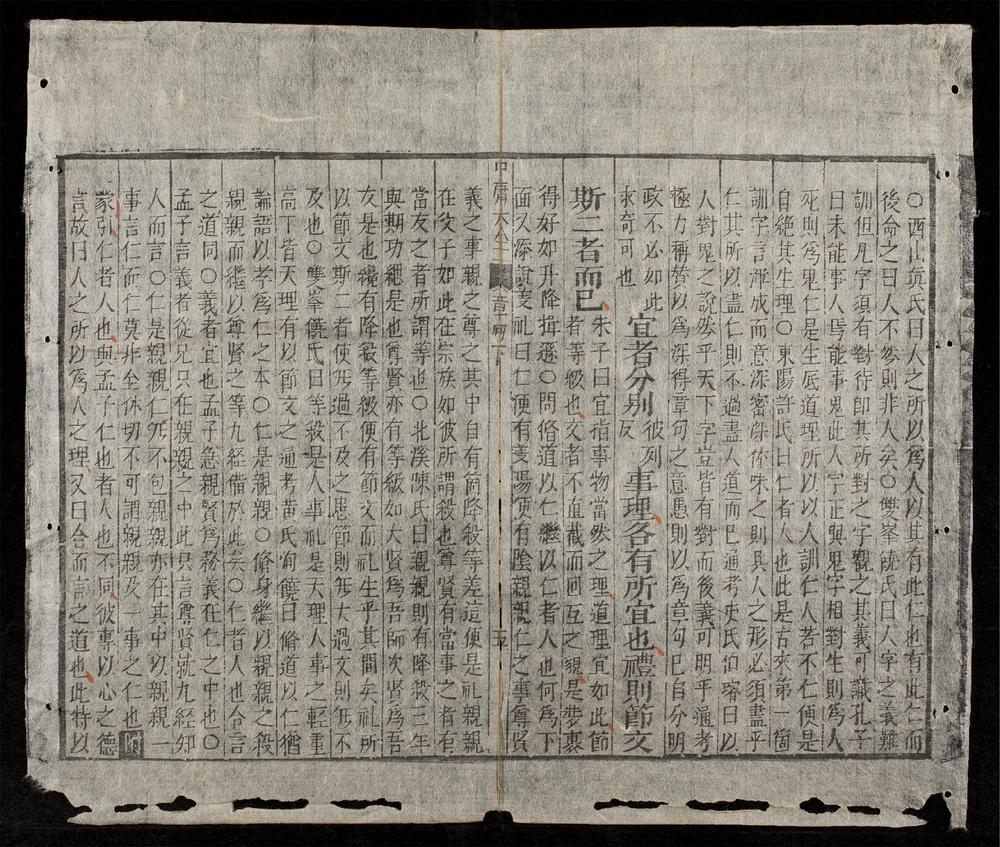 〇西山真氏曰人之所以為人以其有此仁也有此仁而
後命之曰人不然則非人矣〇雙峯饒氏曰人字之義難
訓但凡字須有對待即其所對之字觀之其義可識孔子
曰未能事人焉能事鬼此人字正與鬼字相對生則為人
死則為鬼仁是生底道理所以以人訓仁人若不仁便是
自絕其生理〇東陽許氏曰仁者人也此是古來第一箇
訓字言渾成而意深密深体味之則具人之形必須盡乎
仁其所以盡仁則不過盡人道而已通考史氏伯璿曰以
人對鬼之說然乎天下字豈皆有對而後義可明乎通考
極力稱贊以為深得章句之意愚則以為章句已自分明
政不必如此
求奇可也
宜者分別彼列反事理各有所宜也禮則節文
斯二者而已
朱子曰宜指事物當然之理道理宜如此節
者等級也文者不直截而回互之貌是裝裹
得好如升降揖遜〇問脩道以仁繼以仁者人也何為下
面又添說義礼曰仁便有義陽便有陰親親仁之事尊賢
中庸大全 章句下
義之事親之尊之其中自有箇降殺等差這便是礼親親
在父子如此在宗族如彼所謂殺也尊賢有當事之者有
當友之者所謂等也〇北溪陳氏曰親親則有降殺三年
與期功緦是也尊賢亦有等級如大賢為吾師次賢為吾
友是也纔有降殺等級便有節文而礼生乎其間矣礼所
以節文斯二者使无過不及之患節則无太過文則无不
及也〇雙峯饒氏曰等殺是人事礼是天理人事之輕重
高下皆天理有以節文之通考黄氏洵饒曰脩道以仁猶
論語以孝為仁之本〇仁是親親〇脩身繼以親親之殺
親親而繼以尊賢之等九経備於此矣〇仁者人也合言
之道同〇義者宜也孟子急親賢為務義在仁之中也〇
孟子言義者從兄只在親親之中此只言尊賢就九経知
人而言〇仁是親親仁无不包親親亦在其中以親親一
事言仁而仁莫非全体切不可謂親親及一事之仁也附
蒙引仁者人也與孟子仁也者人也不同彼專以心之德
言故曰人之所以為人之理又曰合而言之道也此特以